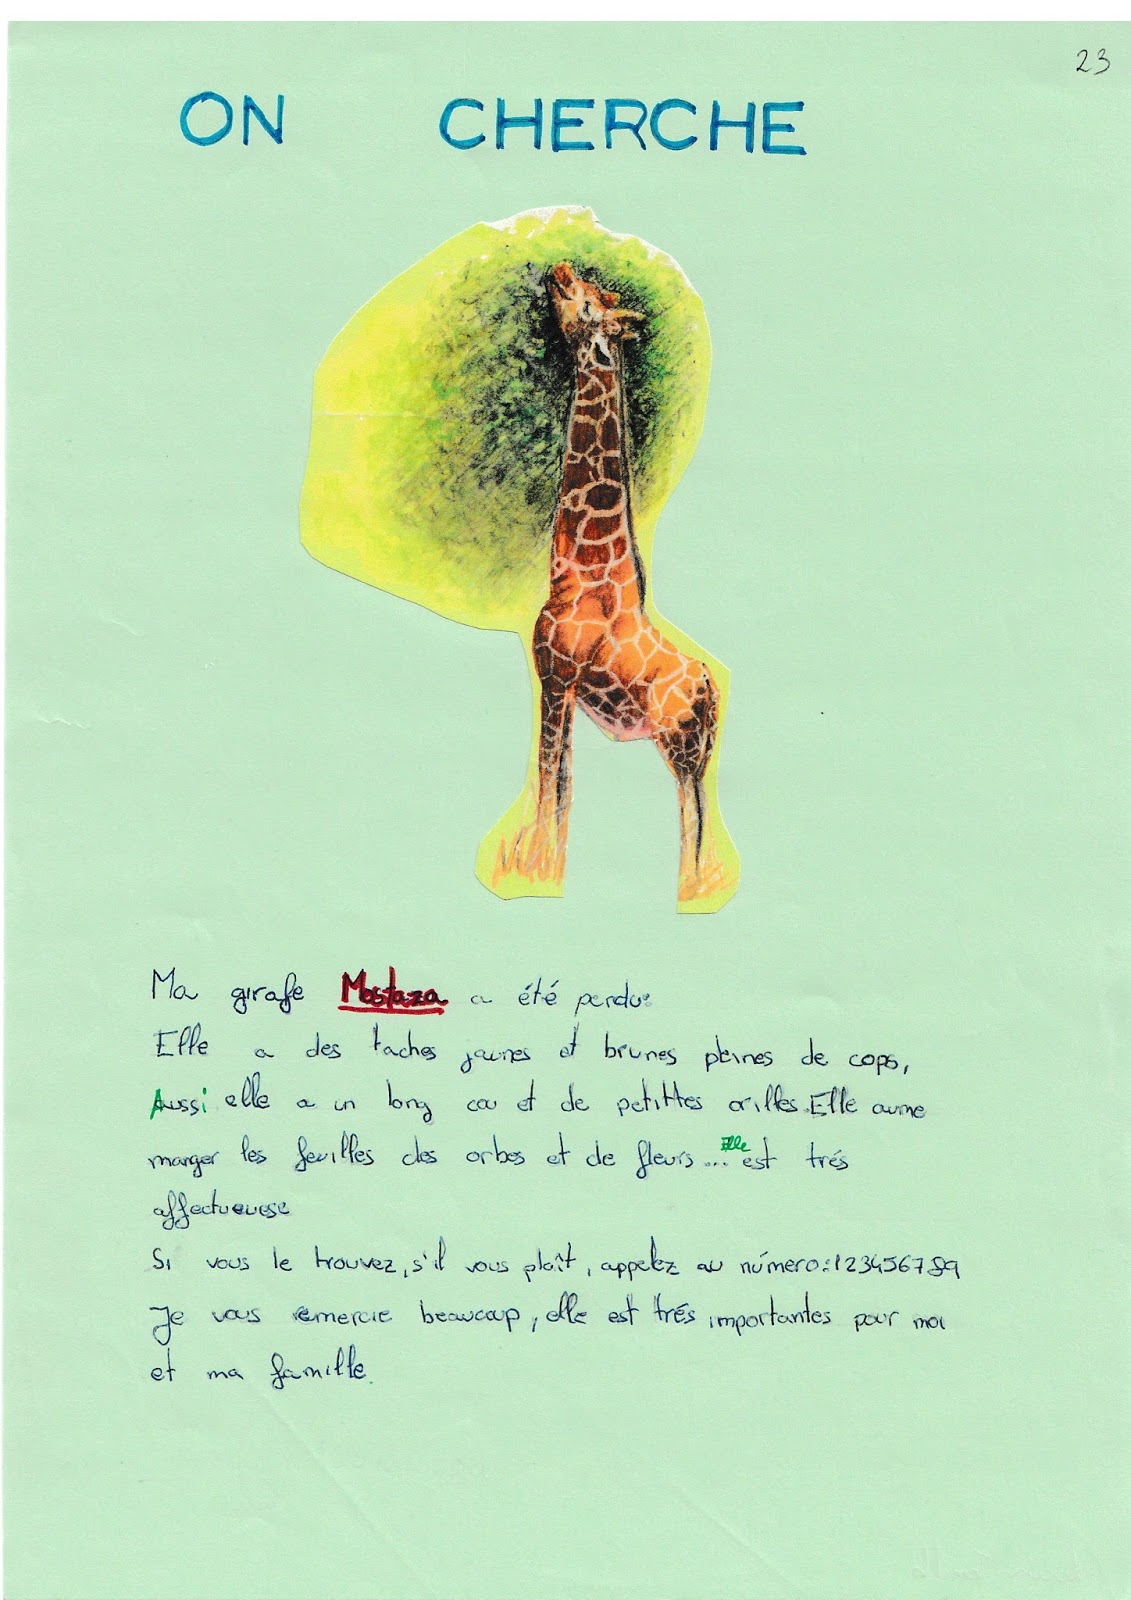 23
ON CHERCHE
Ma girafe Mostaza a été perdue
Elle a des taches jaunes et brunes pleines de cops,
Aussi elle a un long cou et de petittes orilles. Elle aime
manger les feuilles des arbes et de fleurs... Elle est trés
affectueuese
Si vous le trouvez, s'il vous plaît, appelez au número: 123456789
Je vous remercie beaucoup, elle est trés importantes pour moi
et ma famille.